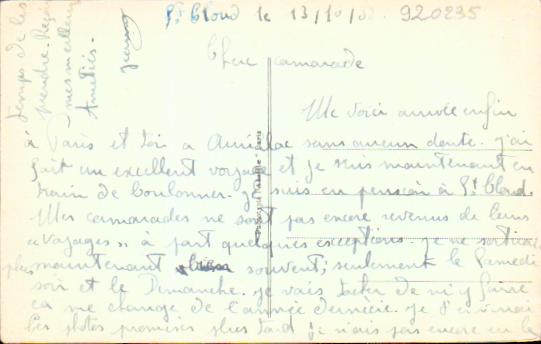 St Cloud le 13/10/52. 920235
Chère camarade
Me voici arrivée enfin
à Paris et toi a Aurillac sans aucun doute. j'ai
fait un excellent voyage et je suis maintenant en
train de boulonner. je suis en pension à St Cloud.
Mes camarades ne sont pas encore revenus de leurs
«voyages» à part quelques exceptions. je ne sortirai
plus maintenant bien souvent; seulement le Samedi
soir et le Dimanche. je vais tacher de m'y faire
ca me change de l'année dernière. je t'enverrai
les photos promises plus tard je n'ais pas encore eu le
temps de les
prendre. Reçois
mes meilleures
Amitiés.